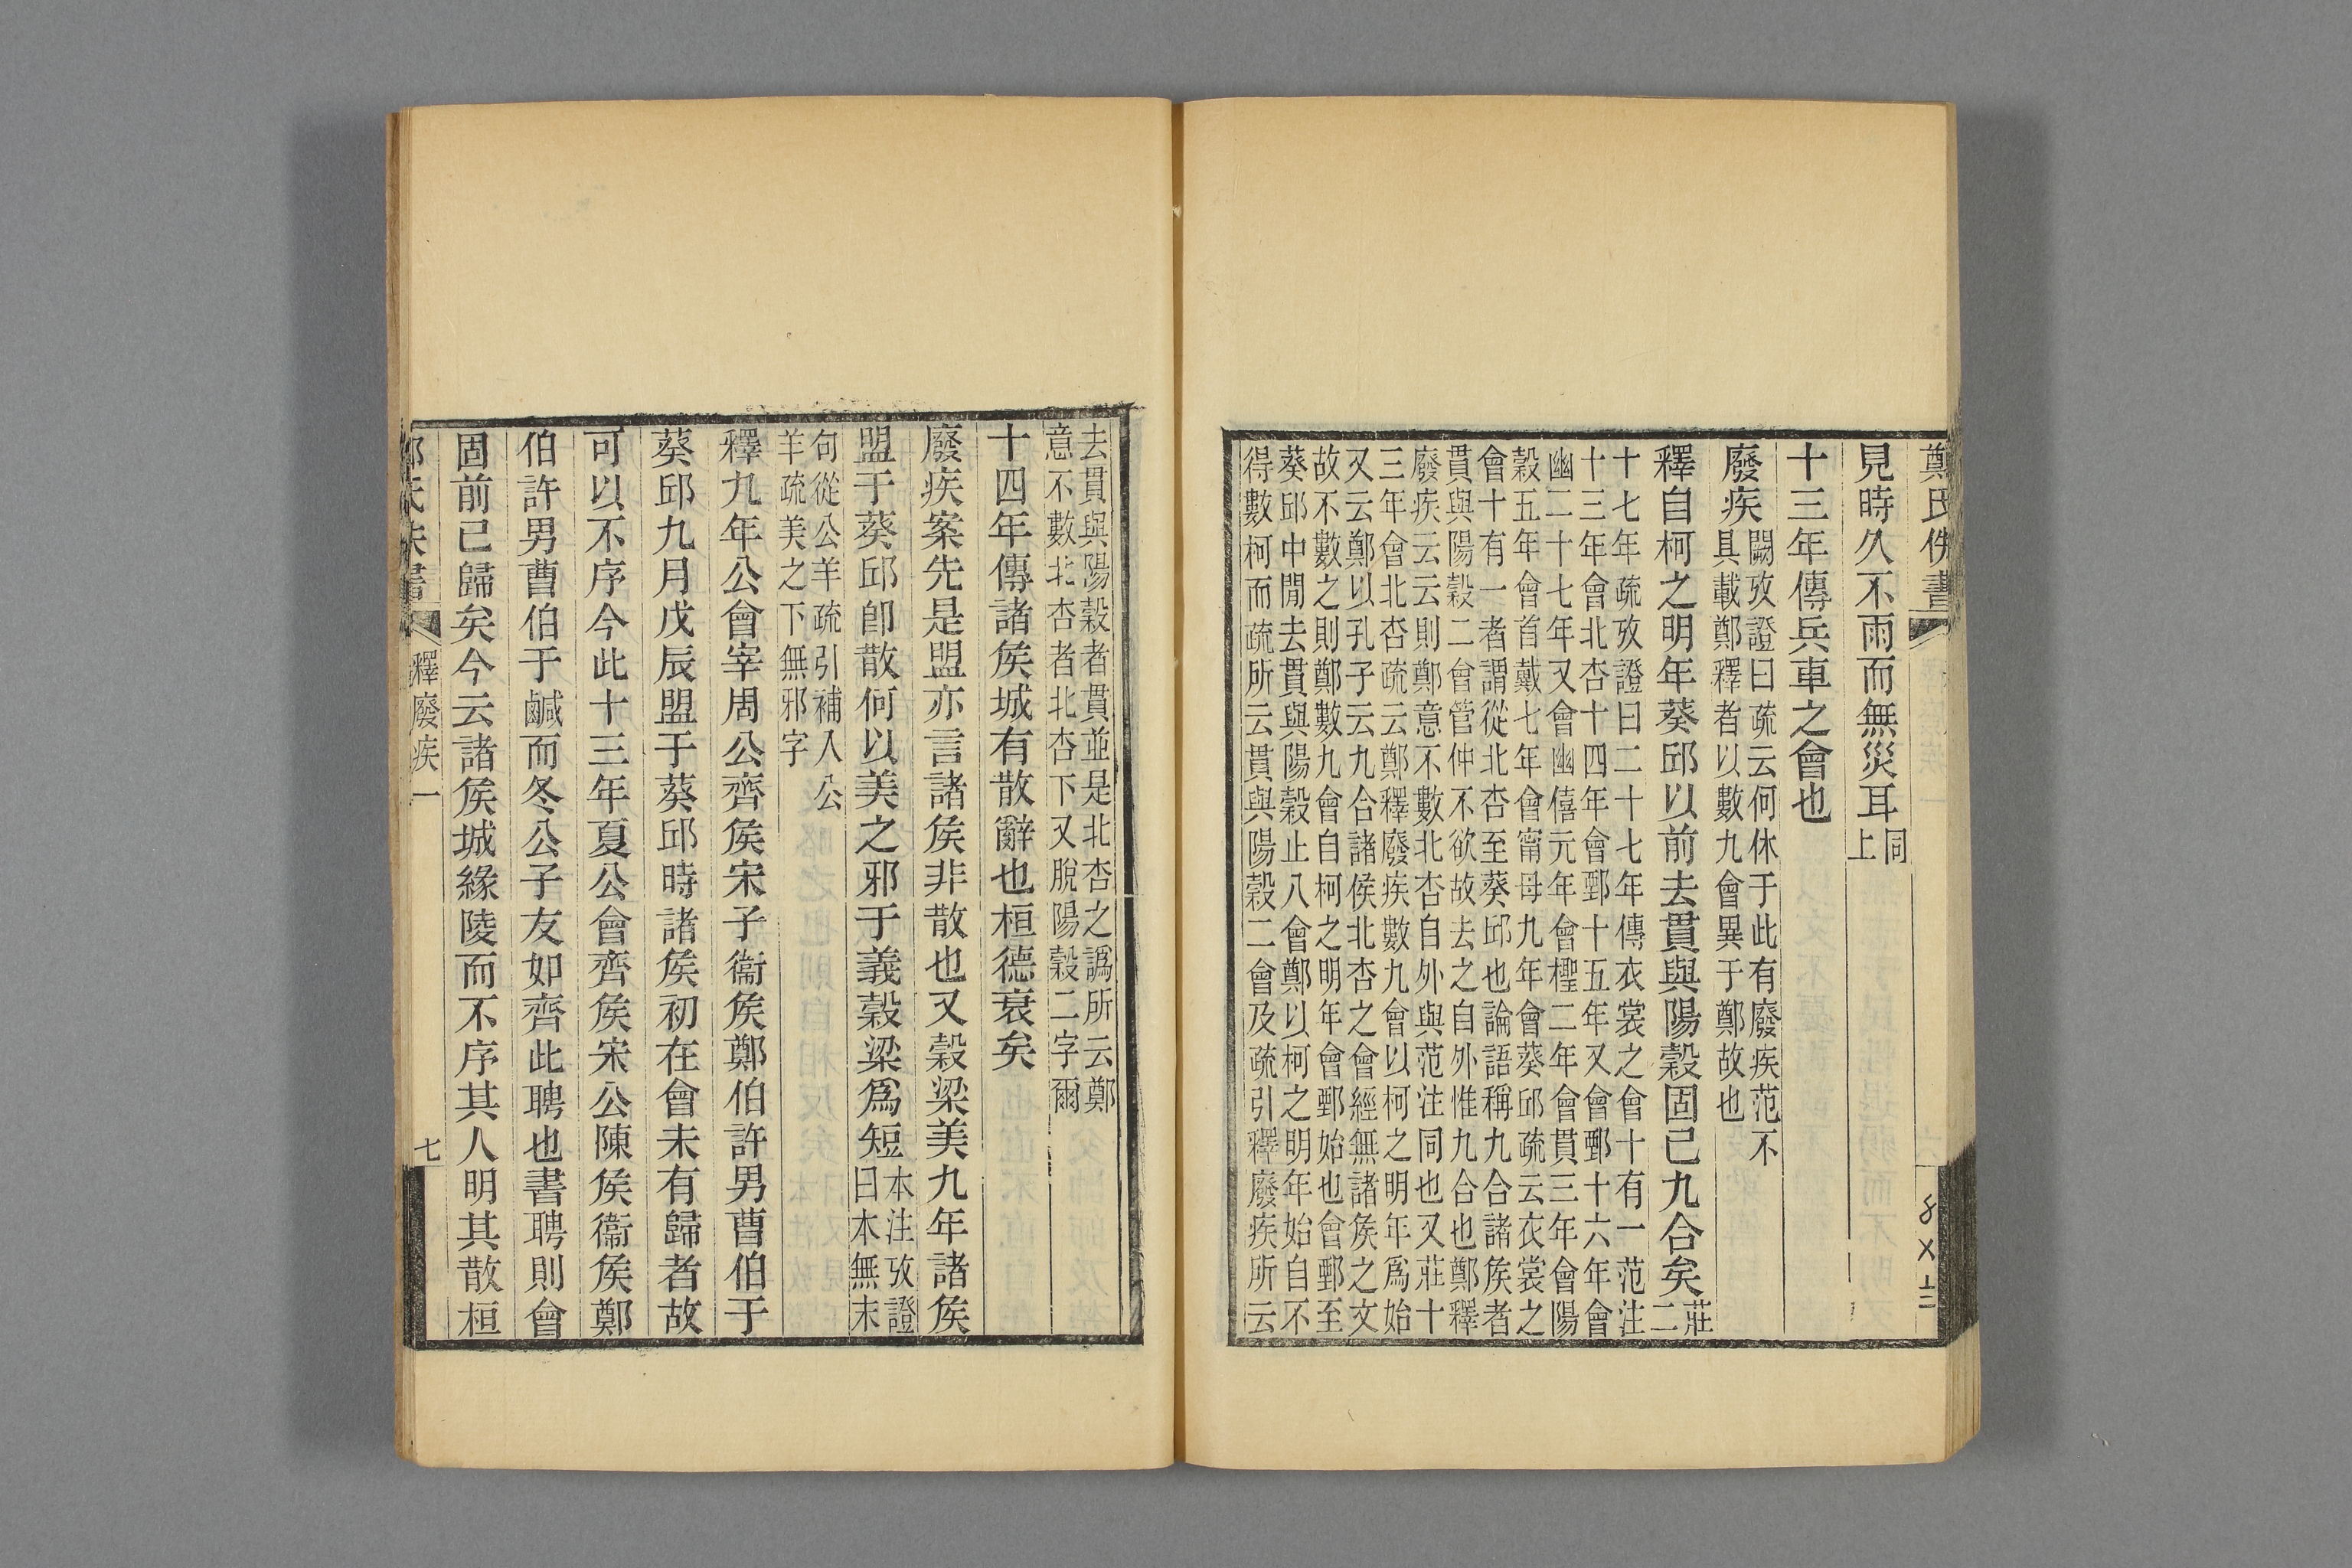 鄭氏佚書
見時久不雨而無災耳同
上
十三年傳兵車之會也
廢疾闕攷證曰疏云何休于此有廢疾范不
具載鄭釋者以數九會異于鄭故也
釋自柯之明年葵邱以前去貫與陽穀固已九合矣莊
二
十七年疏攷證曰二十七年傳衣裳之會十有一范注
十三年會北杏十四年會鄄十五年又會鄄十六年會
幽二十七年又會幽僖元年會檉二年會貫三年會陽
穀五年會首戴七年會甯母九年會葵邱疏云衣裳之
會十有一者謂從北杏至葵邱也論語稱九合諸矦者
貫與陽穀二會管仲不欲故去之自外惟九合也鄭釋
廢疾云云則鄭意不數北杏自外與范注同也又莊十
三年會北杏疏云鄭釋廢疾數九會以柯之明年爲始
又云鄭以孔子云九合諸侯北杏之會經無諸矦之文
故不數之則鄭數九會自柯之明年會鄄始也會鄄至
葵邱中閒去貫與陽穀止八會鄭以柯之明年始自不
得數柯而疏所云貫與陽穀二會及疏引釋廢疾所云
去貫與陽穀者貫並是北杏之譌所云鄭
意不數北杏者北杏下又脫陽穀二字爾
十四年傳諸矦城有散辭也桓德衰矣
廢疾案先是盟亦言諸矦非散也又穀梁美九年諸矦
盟于葵邱卽散何以美之邪于義穀梁爲短本注攷證
曰本無末
句從公羊疏引補人公
羊疏美之下無邪字
釋九年公會宰周公齊矦宋子衞矦鄭伯許男曹伯于
葵邱九月戊辰盟于葵邱時諸矦初在會未有歸者故
可以不序今此十三年夏公會齊矦宋公陳矦衞矦鄭
伯許男曹伯于鹹而冬公子友如齊此聘也書聘則會
固前已歸矣今云諸矦城緣陵而不序其人明其散桓
釋廢疾一
七